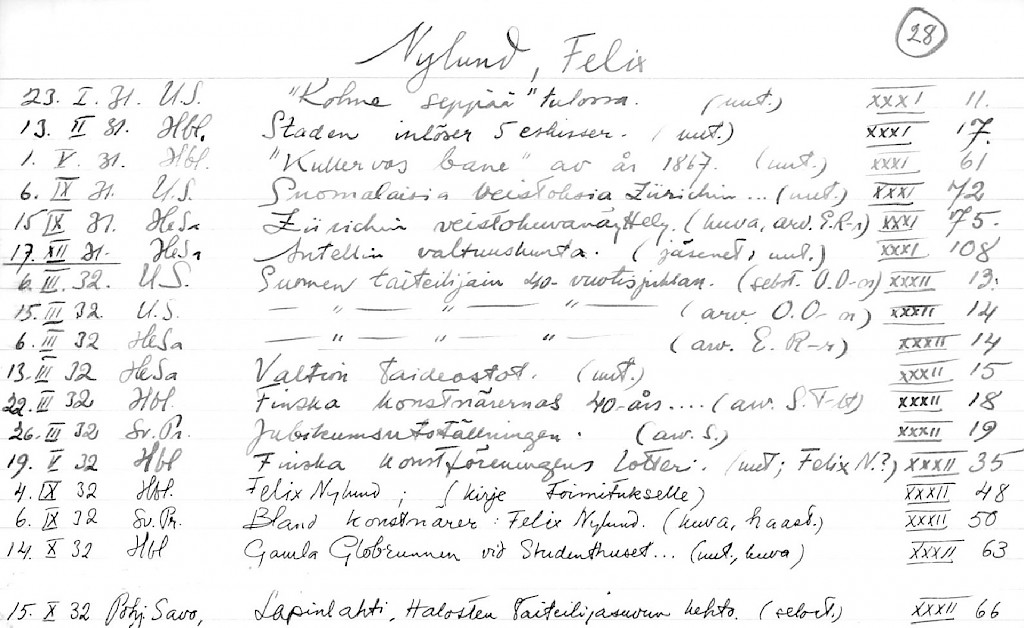 28
Nylund, Felix
23. I. 31. U.S. "Kolme seppää" tulossa. (uut.) XXXI 11.
13. II 31. Hbl. Staden inlöser 5 eskisser. (uut.) XXXI 17.
1. V. 31. Hbl. "Kullervos bane" av år 1867. (uut.) XXXI 61
6. IX 31. U.S. Suomalaisia veistoksia Zürichiin... (uut.) XXXI 72
15 IX 31. HeSa Zürichin veistokuvanäyttely. (kuva, arv. E.R-r) XXXI 75.
17. XII 31. HeSa Antellin valtuuskunta. (jäsenet, uut.) XXXI 108
6. III. 32. U.S. Suomen taiteilijain 40-vuotisjuhlan. (selost. O.O-n) XXXII 13.
15. III 32. U.S. — " — " — " — (arv. O.O-n) XXXII 14
6. III 32 HeSa — " — " — " — (arv. E. R-r) XXXII 14
13. III 32 HeSa Valtion taideostot. (uut.) XXXII 15
22. III 32 Hbl. Finska konstnärernas 40-års.... (arv. S.T-lt) XXXII 18
26. III 32 Sv.Pr. Jubileumsutställningen. (arv. S.) XXXII 19
19. V 32 Hbl Finska Konstföreningens Lotteri. (uut; Felix N.?) XXXII 35
4. IX 32 Hbl. Felix Nylund; (kirje toimitukselle) XXXII 48
6. IX 32 Sv.Pr. Bland konstnärer: Felix Nylund. (kuva, haast.) XXXII 50
14. X 32 Hbl Gamla Globrunnen vid Studenthuset... (uut., kuva) XXXII 63
15. X 32 Pohj.Savo, Lapinlahti, Halosten taiteilijasuvun kehto. (selost.) XXXII 66